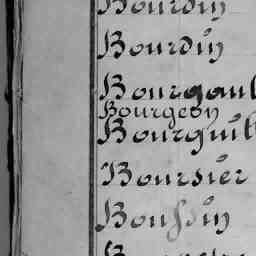 Bourdin
Bourdin
Bourgaul
Bourgeon
Bourguil
Boursier
Boussin